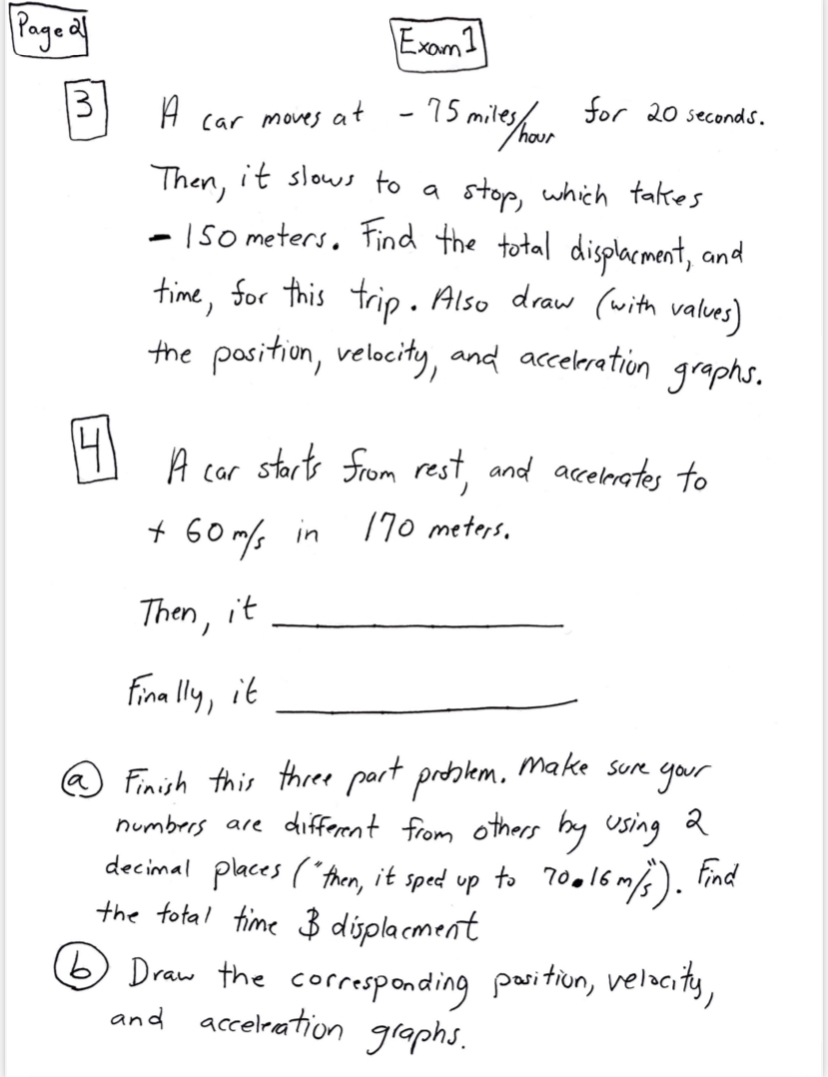 Page 2
Exam 1
3 A car moves at - 75 miles/hour for 20 seconds.
Then, it slows to a stop, which takes
- 150 meters. Find the total displacment, and
time, for this trip. Also draw (with values)
the position, velocity, and acceleration graphs.
4 A car starts from rest, and accelerates to
+ 60 m/s in 170 meters.
Then, it
Finally, it
a Finish this three part problem. Make sure your
numbers are different from others by using 2
decimal places ("then, it sped up to 70.16 m/s"). Find
the total time & displacment
b Draw the corresponding position, velocity,
and acceleration graphs.